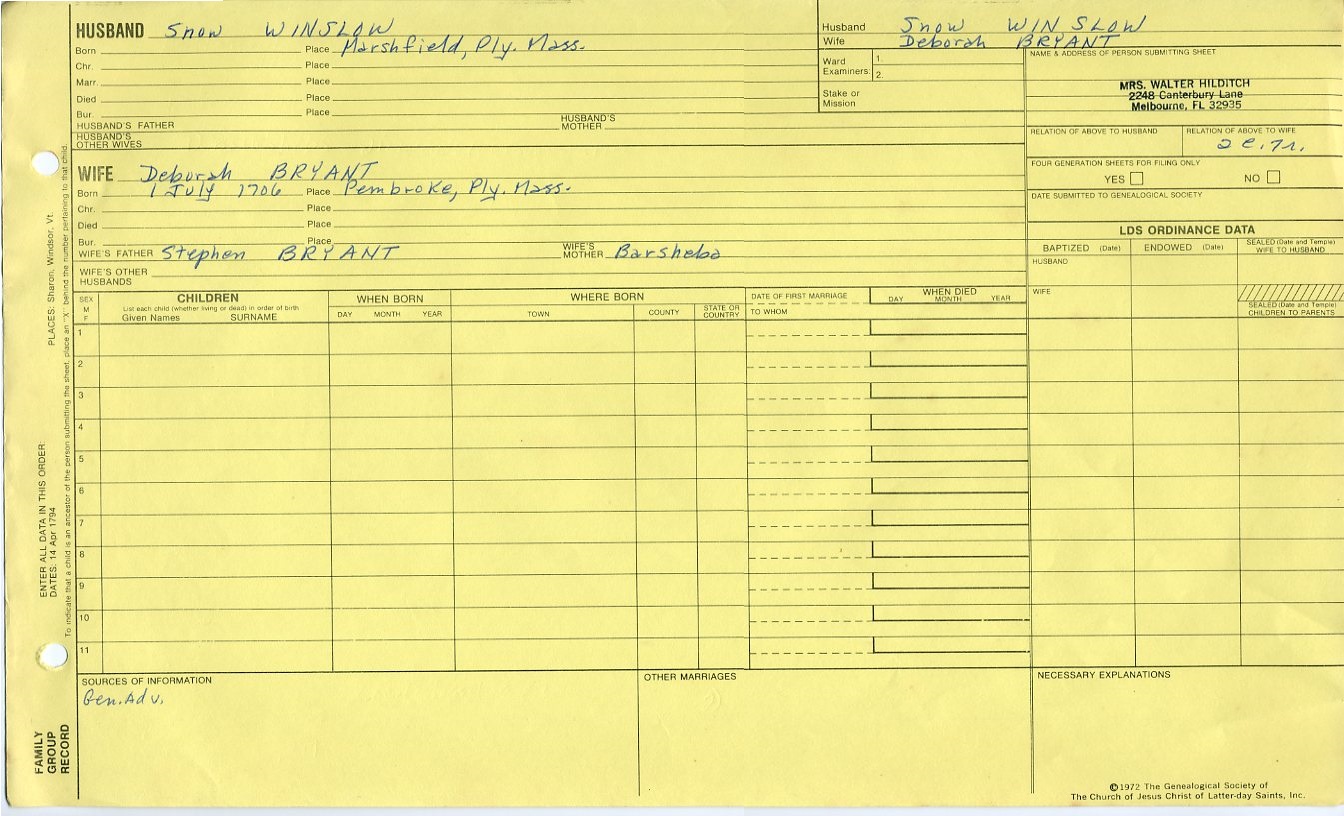 HUSBAND Snow WINSLOW
Born Place Marshfield, Ply. Mass.
Chr. Place
Marr. Place
Died Place
Bur. Place
HUSBAND'S FATHER HUSBAND'S MOTHER
HUSBAND'S OTHER WIVES
Husband Snow WINSLOW
Wife Deborah BRYANT
Ward Examiners: 1.
2.
Stake or Mission
NAME & ADDRESS OF PERSON SUBMITTING SHEET
MRS. WALTER HILDITCH
2248 Canterbury Lane
Melbourne, FL 32935
RELATION OF ABOVE TO HUSBAND RELATION OF ABOVE TO WIFE
FOUR GENERATION SHEETS FOR FILING ONLY
YES NO
DATE SUBMITTED TO GENEALOGICAL SOCIETY
WIFE Deborah BRYANT
Born 1 July 1706 Place Pembroke, Ply. Mass.
Chr. Place
Died Place
Bur. Place
WIFE'S FATHER Stephen BRYANT WIFE'S MOTHER Barsheba
WIFE'S OTHER HUSBANDS
LDS ORDINANCE DATA
BAPTIZED (Date) ENDOWED (Date) SEALED (Date and Temple) WIFE TO HUSBAND
HUSBAND
WIFE
SEALED (Date and Temple) CHILDREN TO PARENTS
SEX M F
CHILDREN
List each child (whether living or dead) in order of birth
Given Names SURNAME
WHEN BORN
DAY MONTH YEAR
WHERE BORN
TOWN COUNTY STATE OR COUNTRY
DATE OF FIRST MARRIAGE
TO WHOM
WHEN DIED
DAY MONTH YEAR
1
2
3
4
5
6
7
8
9
10
11
SOURCES OF INFORMATION
Gen. Adv.
OTHER MARRIAGES
NECESSARY EXPLANATIONS
©1972 The Genealogical Society of
The Church of Jesus Christ of Latter-day Saints, Inc.
FAMILY
GROUP
RECORD
ENTER ALL DATA IN THIS ORDER:
DATES: 14 Apr 1794 PLACES: Sharon, Windsor, Vt.
To indicate that a child is an ancestor of the person submitting the sheet, place an "X" behind the number pertaining to that child.